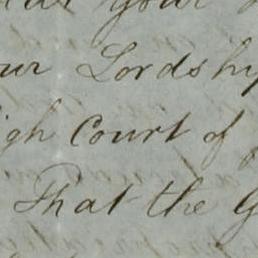 your
ur Lordship
igh Court of
That the